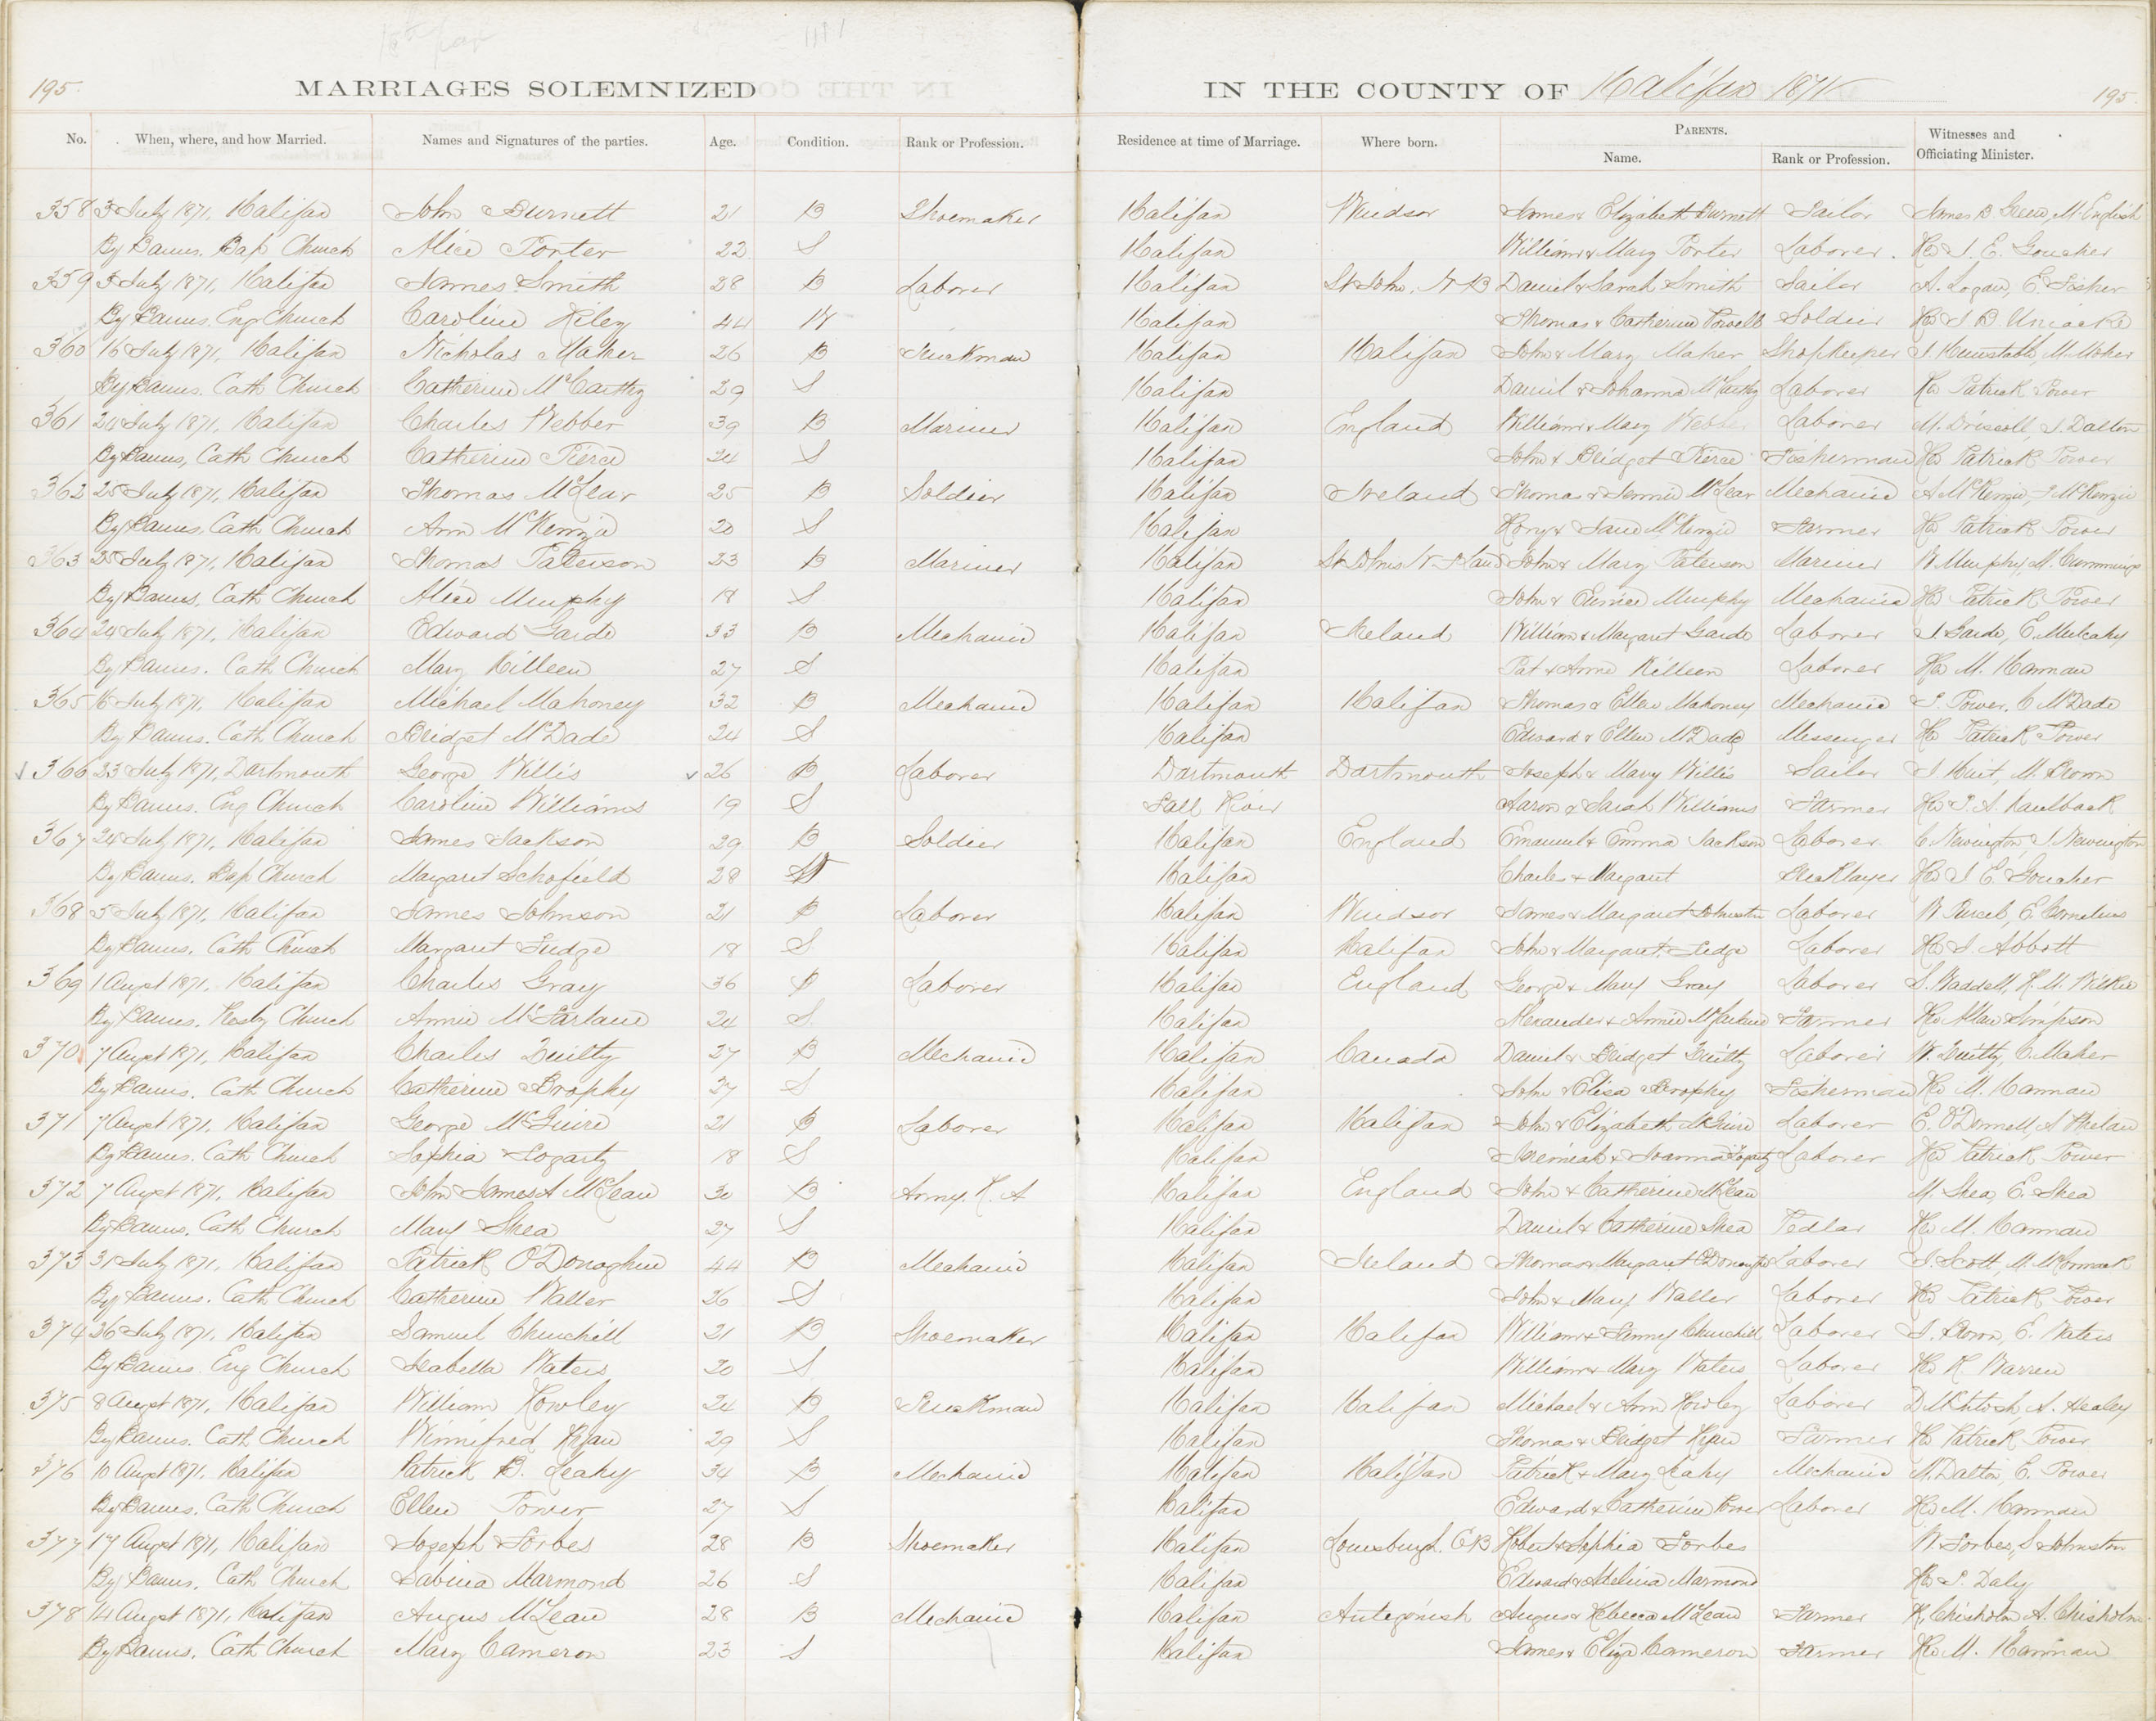 195 MARRIAGES SOLEMNIZED IN THE COUNTY OF Halifax 1871 195
No. When, where, and how Married. Names and Signatures of the parties. Age. Condition. Rank or Profession. Residence at time of Marriage. Where born. PARENTS. Name. Rank or Profession. Witnesses and Officiating Minister.
358 3 July 1871, Halifax John Burnett 21 B Shoemaker Halifax Windsor James & Elizabeth Burnett Sailor James B. Green, M. English
By Banns. Bap Church Alice Porter 22 S Halifax William & Mary Porter Laborer. Rev J. E. Goucher
359 3 July 1871, Halifax James Smith 28 B Laborer Halifax St John. N. B Daniel & Sarah Smith Sailor A. Logan, E. Fisher
By Banns. Eng Church Caroline Riley 44 W Halifax Thomas & Catherine Powell Soldier Rev J B Uniacke
360 16 July 1871, Halifax Nicholas Maher 26 B Truckman Halifax Halifax John & Mary Maher Shopkeeper J. M. Maher
By Banns. Cath Church Catherine McCarthy 29 S Halifax Daniel & Johanna McCarthy Laborer Rev Patrick Power
361 24 July 1871, Halifax Charles Webber 39 B Mariner Halifax England William & Mary Webber Laborer M. Driscoll, J. Dalton
By Banns, Cath Church Catherine Pierce 24 S Halifax John & Bridget Pierce Fisherman Rev Patrick Power
362 25 July 1871, Halifax Thomas McLear 25 B Soldier Halifax Ireland Thomas & Jennie McLear Mechanic A McKenzie, J McKenzie
By Banns. Cath Church Ann McKenzie 20 S Halifax Hony & Jane McKenzie Farmer Rev Patrick Power
363 25 July 1871, Halifax Thomas Paterson 23 B Mariner Halifax St Johns N. F Land John & Mary Paterson Mariner W Murphy, M. Cummings
By Banns, Cath Church Alice Murphy 18 S Halifax John & Murphy Mechanic Rev Patrick Power
364 24 July 1871, Halifax Edward Garde 33 B Mechanic Halifax Ireland William & Margaret Garde Laborer J. Garde, E. Mulcahy
By Banns. Cath Church Mary Killeen 27 S Halifax Pat & Anne Killeen Laborer Rev M. Hannan
365 16 July 1871, Halifax Michael Mahoney 32 B Mechanic Halifax Halifax Thomas & Ellen Mahoney Mechanic J. Power, C McDade
By Banns. Cath Church Bridget McDade 24 S Halifax Edward & Ellen McDade Messenger Rev Patrick Power
366 23 July 1871, Dartmouth George Willis 26 B Laborer Dartmouth Dartmouth Joseph & Mary Willis Sailor J Hait, M. Brown
By Banns. Eng Church Caroline Williams 19 S Fall River Aaron & Sarah Williams Farmer Rev J. A. Kaulback
367 24 July 1871, Halifax James Jackson 29 B Soldier Halifax England Emanuel & Emma Jackson Laborer C. Newington, J Newington
By Banns. Bap Church Margaret Schofield 28 Halifax Charles & Margaret Bricklayer Rev J E Goucher
368 5 July 1871, Halifax James Johnson 21 B Laborer Halifax Windsor James & Margaret Johnston Laborer W Purcel, E. Cornelius
By Banns. Cath Church Margaret Fudge 18 S Halifax Halifax John & Margaret Fudge Laborer Rev J. Abbott
369 1 Augst 1871. Halifax Charles Gray 36 B Laborer Halifax England George & Mary Gray Laborer J. Waddell, R. M. Wilkie
By Banns. Presby Church Annie McFarlane 24 S. Halifax Alexander & Annie McFarlane Farmer Rev Allan Simpson
370 7 Augst 1871, Halifax Charles Quilty 27 B Mechanic Halifax Canada Daniel & Bridget Quilty Laborer W. Quilty, C. Maher
By Banns. Cath Church Catherine Brophy 27 S Halifax John & Elisa Brophy Fisherman Rev M. Hannan
371 7 Augst 1871, Halifax George McGuire 21 B Laborer Halifax Halifax John & Elizabeth McGuire Laborer E. O'Donnell, A Phelan
By Banns. Cath Church Sophia Fogarty 18 S Halifax Jeremiah & Joanna Fogarty Laborer Rev Patrick Power
372 7 Augst 1871, Halifax John James A McLean 30 B Army. R. A Halifax England John & Catherine McLean M. Shea, E. Shea
By Banns. Cath Church Mary Shea 27 S Halifax Daniel & Catherine Shea Pedlar Rev M. Hannan
373 31 July 1871, Halifax Patrick O'Donoghue 44 B Mechanic Halifax Ireland Thomas & Margaret O'Donoghue Laborer J. Scott, M. McCormack
By Banns. Cath Church Catherine Waller 26 S Halifax John & Mary Waller Laborer Rev Patrick Power
374 26 July 1871, Halifax Samuel Churchill 21 B Shoemaker Halifax Halifax William & Fanny Churchill Laborer J. Brown, E. Waters
By Banns. Eng Church Isabella Waters 20 S Halifax William & Mary Waters Laborer Rev R. Warren
375 8 Augst 1871, Halifax William Rowley 24 B Truckman Halifax Halifax Michael & Ann Rowley Laborer D McIntosh, A. Healey
By Banns. Cath Church Winnifred Ryan 29 S Halifax Thomas & Bridget Ryan Farmer Rev Patrick Power
376 10 Augst 1871. Halifax Patrick B. Leahy 34 B Mechanic Halifax Halifax Patrick & Mary Leahy Mechanic M. Dalton, E. Power
By Banns. Cath Church Ellen Power 27 S Halifax Edward & Catherine Power Laborer Rev M. Hannan
377 17 Augst 1871, Halifax Joseph Forbes 28 B Shoemaker Halifax Louisburgh. C B Robert & Sophia Forbes W. Forbes, S Johnston
By Banns. Cath Church Sabina Marmond 26 S Halifax Edward & Adelina Marmond Rev P. Daly
378 14 Augst 1871, Halifax Angus McLean 28 B Mechanic Halifax Antigonish Angus & Rebecca McLean Farmer R. Chisholm A. Chisholm
By Banns. Cath Church Mary Cameron 23 S Halifax James & Eliza Cameron Farmer Rev M. Hannan